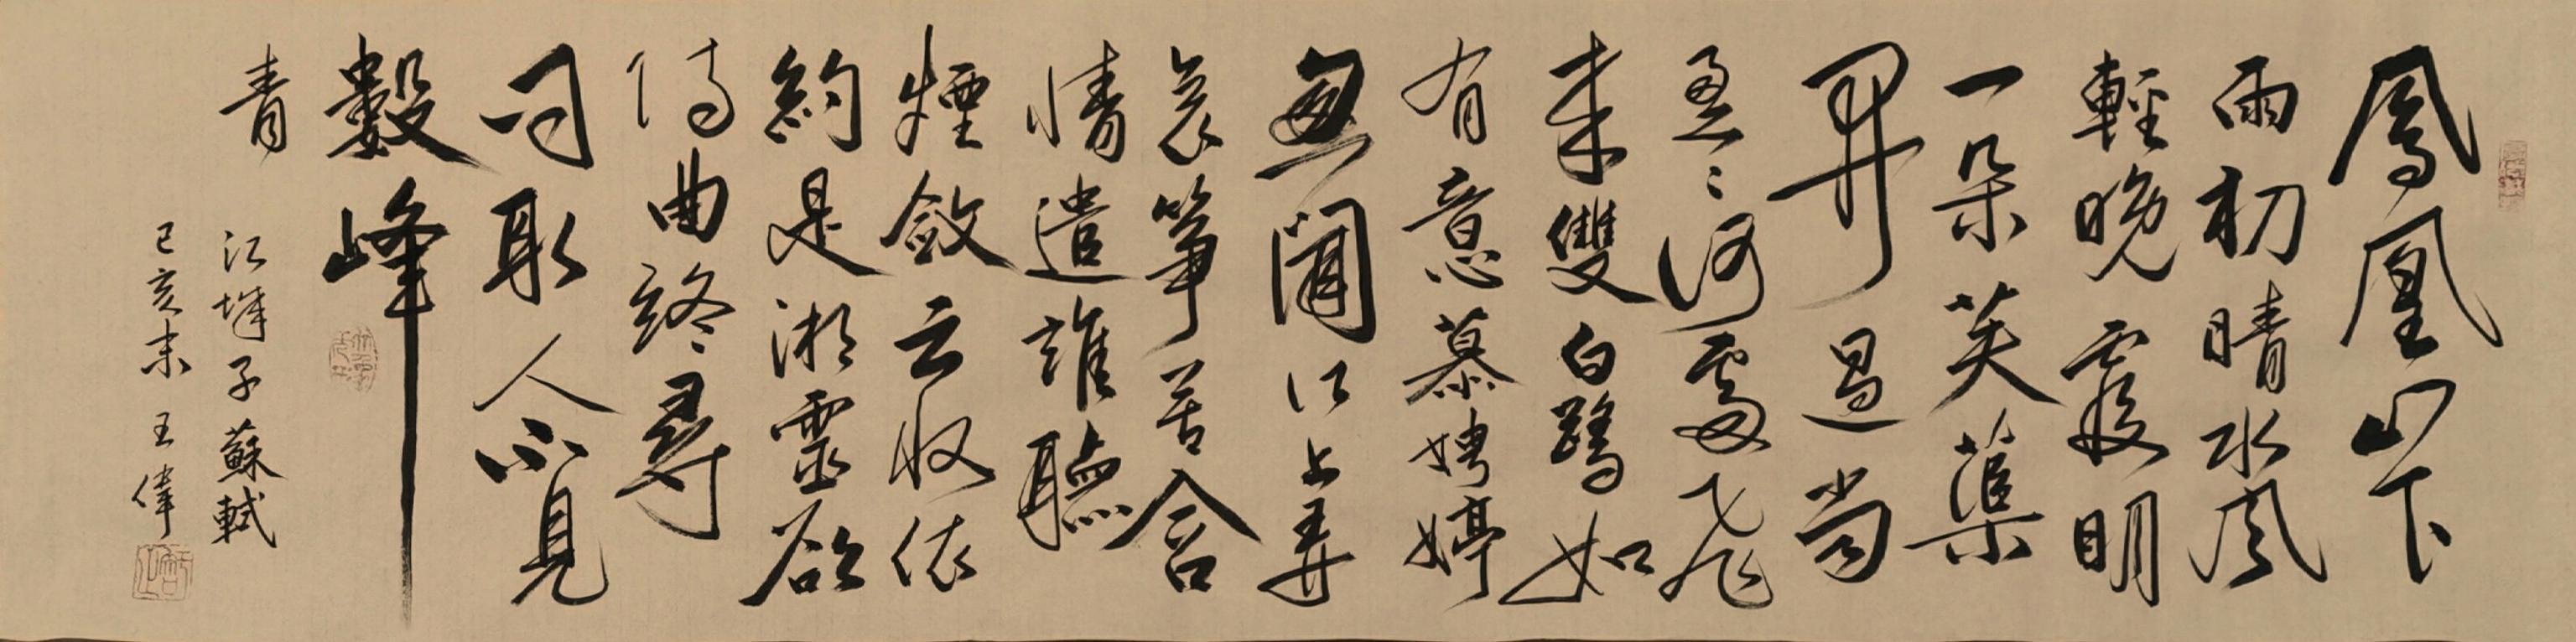 鳳凰山下
雨初晴水風
輕晚霞明
一朵芙蕖
開過尚
盈〻何處飛
來雙白鷺如
有意慕娉婷
忽聞江上弄
哀箏苦含
情遣誰聽
煙斂云收依
約是湘靈欲
待曲終尋
問取人不見
數峰
青
江城子 蘇軾
己亥末 王偉